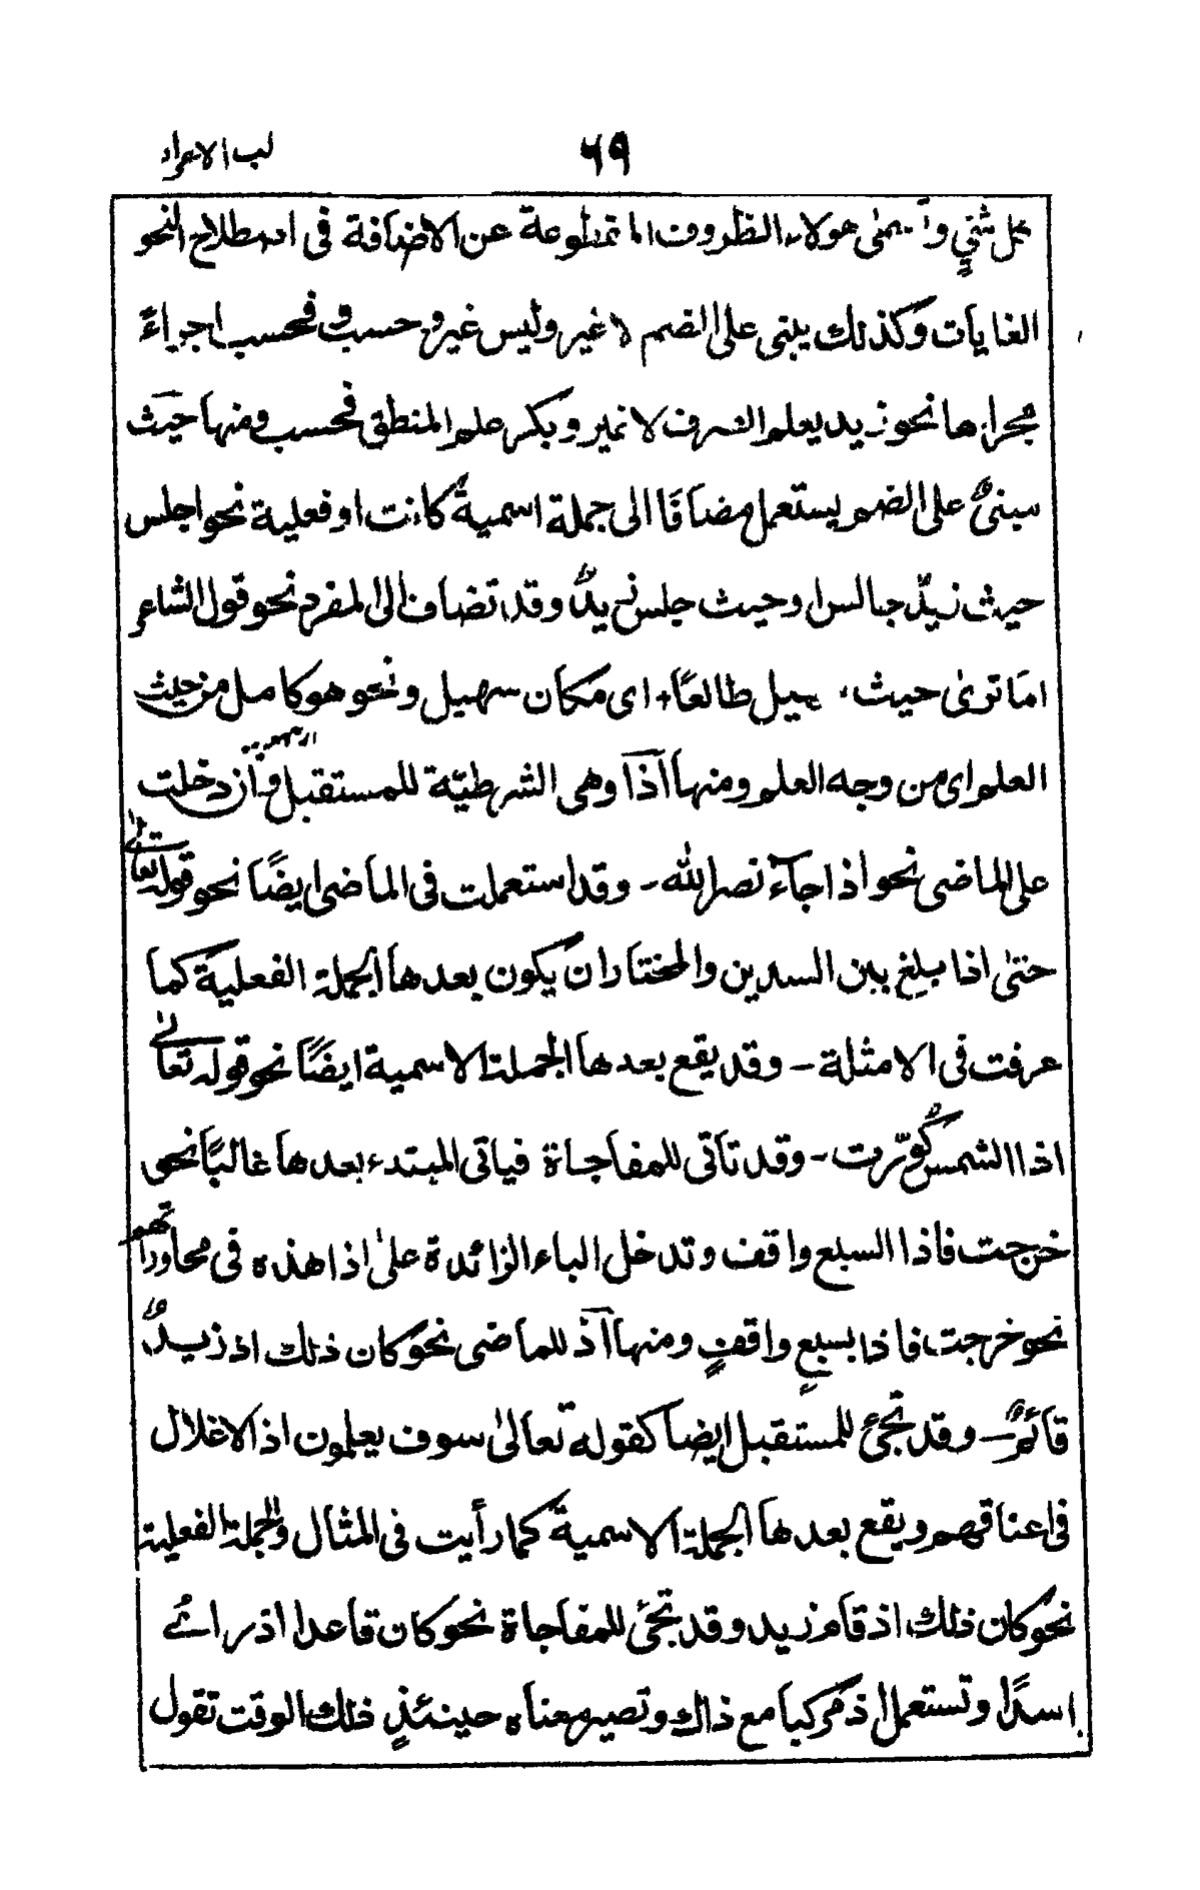 ٦٩ لب الاعراب
كل شئٍ و تسمى هولاء الظروف المقطوعة عن الاضافة فى اصطلاح النحو
الغايات وكذلك يبنى على الضم لا غير وليس غير و حسب و فحسب اجراءً
مجراها نحو زيد يعلم الصرف لا غير و بكر علم المنطق فحسب ومنها حيث
مبنىٌ على الضم يستعمل مضافا الى جملة اسميةً كانت او فعلية نحو اجلس
حيث زيدٌ جالس او حيث جلس زيدٌ وقد تضاف الى المفرد نحو قول الشاعر
اما ترى حيث سهيل طالعًا، اى مكان سهيل ونحو هو كامل من حيث
العلم اى من وجه العلم ومنها اذا وهى الشرطيّة للمستقبل وان دخلت
على الماضى نحو اذا جآء نصر الله ـ وقد استعملت فى الماضى ايضًا نحو قوله تعالى
حتى اذا بلغ بين السدين والمختار ان يكون بعدها الجملة الفعلية كما
عرفت فى الامثلة ـ وقد يقع بعدها الجملة الاسمية ايضًا نحو قوله تعالى
اذا الشمس كُوّرت ـ وقد تأتى للمفاجاة فياتى المبتدء بعدها غالبًا نحو
خرجت فاذا السبع واقف وتدخل الباء الزائدة على اذا هذه فى محاوراتهم
نحو خرجت فاذا بسبعٍ واقفٍ ومنها اذ للماضى نحو كان ذلك اذ زيدٌ
قائمٌ ـ وقد تجئ للمستقبل ايضا كقوله تعالى سوف يعلمون اذ الاغلال
فى اعناقهم ويقع بعدها الجملة الاسمية كما رأيت فى المثال والجملة الفعلية
نحو كان ذلك اذ قام زيد وقد تجئ للمفاجاة نحو كان قاعدا اذ رائے
اسدًا وتستعمل اذ مركبا مع ذاك وتصير معناه حينئذٍ ذلك الوقت تقول